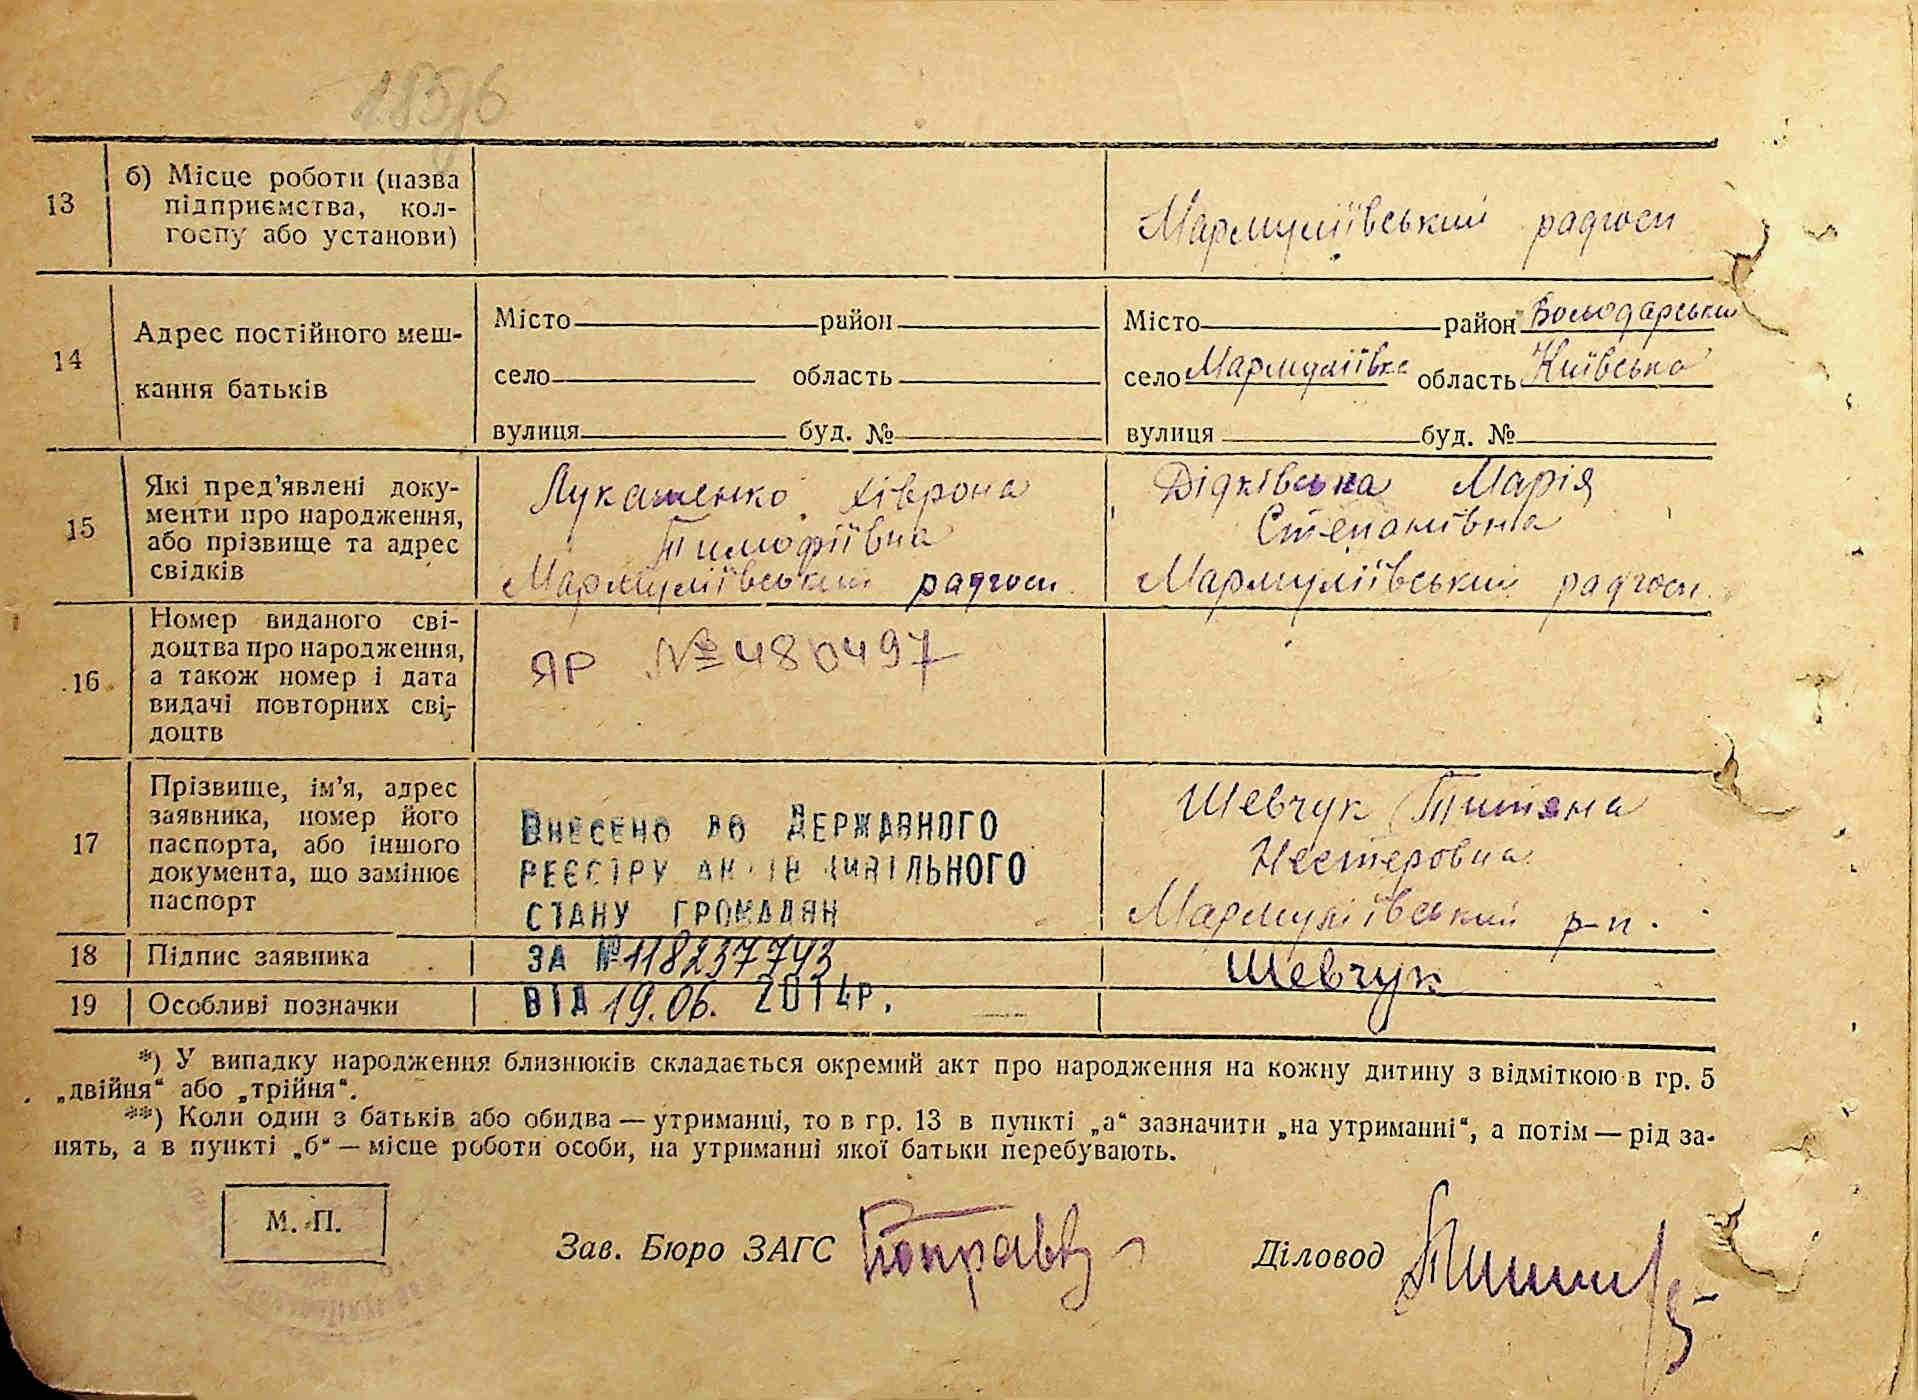 1876
13
б) Місце роботи (назва
підприємства, кол-
госпу або установи)
Мармуліївський радгосп
14
Адрес постійного меш-
кання батьків
Місто район
село область
вулиця буд. №
Місто район Володарський
село Мармуліївка область Київська
вулиця буд. №
15
Які пред'явлені доку-
менти про народження,
або прізвище та адрес
свідків
Лукашенко Хіврона
Тимофіївна
Мармуліївський радгосп
Дідківська Марія
Степанівна
Мармуліївський радгосп
16
Номер виданого сві-
доцтва про народження,
а також номер і дата
видачі повторних сві-
доцтв
ЯР №480497
17
Прізвище, ім'я, адрес
заявника, номер його
паспорта, або іншого
документа, що замінює
паспорт
Внесено до Державного
реєстру актів цивільного
стану громадян
за №118237743
від 19.06. 2014р.
Шевчук Титяна
Нестеровна
Мармуліївський р-п.
18
Підпис заявника
Шевчук
19
Особливі позначки
*) У випадку народження близнюків складається окремий акт про народження на кожну дитину з відміткою в гр. 5
„двійня“ або „трійня“.
**) Коли один з батьків або обидва — утриманці, то в гр. 13 в пункті „а“ зазначити „на утриманні“, а потім — рід за-
нять, а в пункті „б“ — місце роботи особи, на утриманні якої батьки перебувають.
М. П.
Зав. Бюро ЗАГС
Діловод